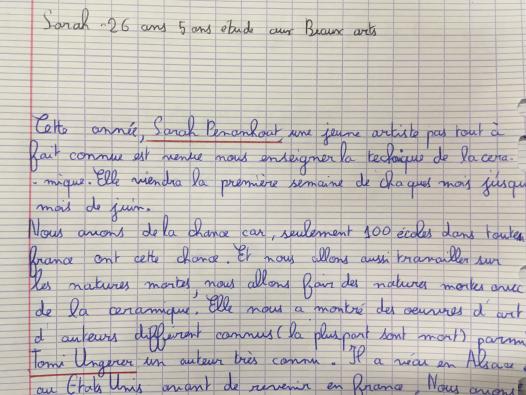 Sarah - 26 ans 5 ans étude aux Beaux arts
Cette année, Sarah Penanhout une jeune artiste pas tout à
fait connue est venue nous enseigner la technique de la cera-
-mique. Elle viendra la première semaine de chaques mois jusqu
mois de juin.
Nous avons de la chance car, seulement 100 écoles dans toutes
France ont cette chance. Et nous allons aussi travailler sur
les natures mortes, nous allons fair des natures mortes avec
de la ceramique. Elle nous a montré des oeuvres d'art
d'auteurs différent connus (la plus part sont mort) parmi
Tomi Ungerer un auteur très connu. Il a vécu en Alsace,
au Etats Unis avant de revenir en France. Nous avons